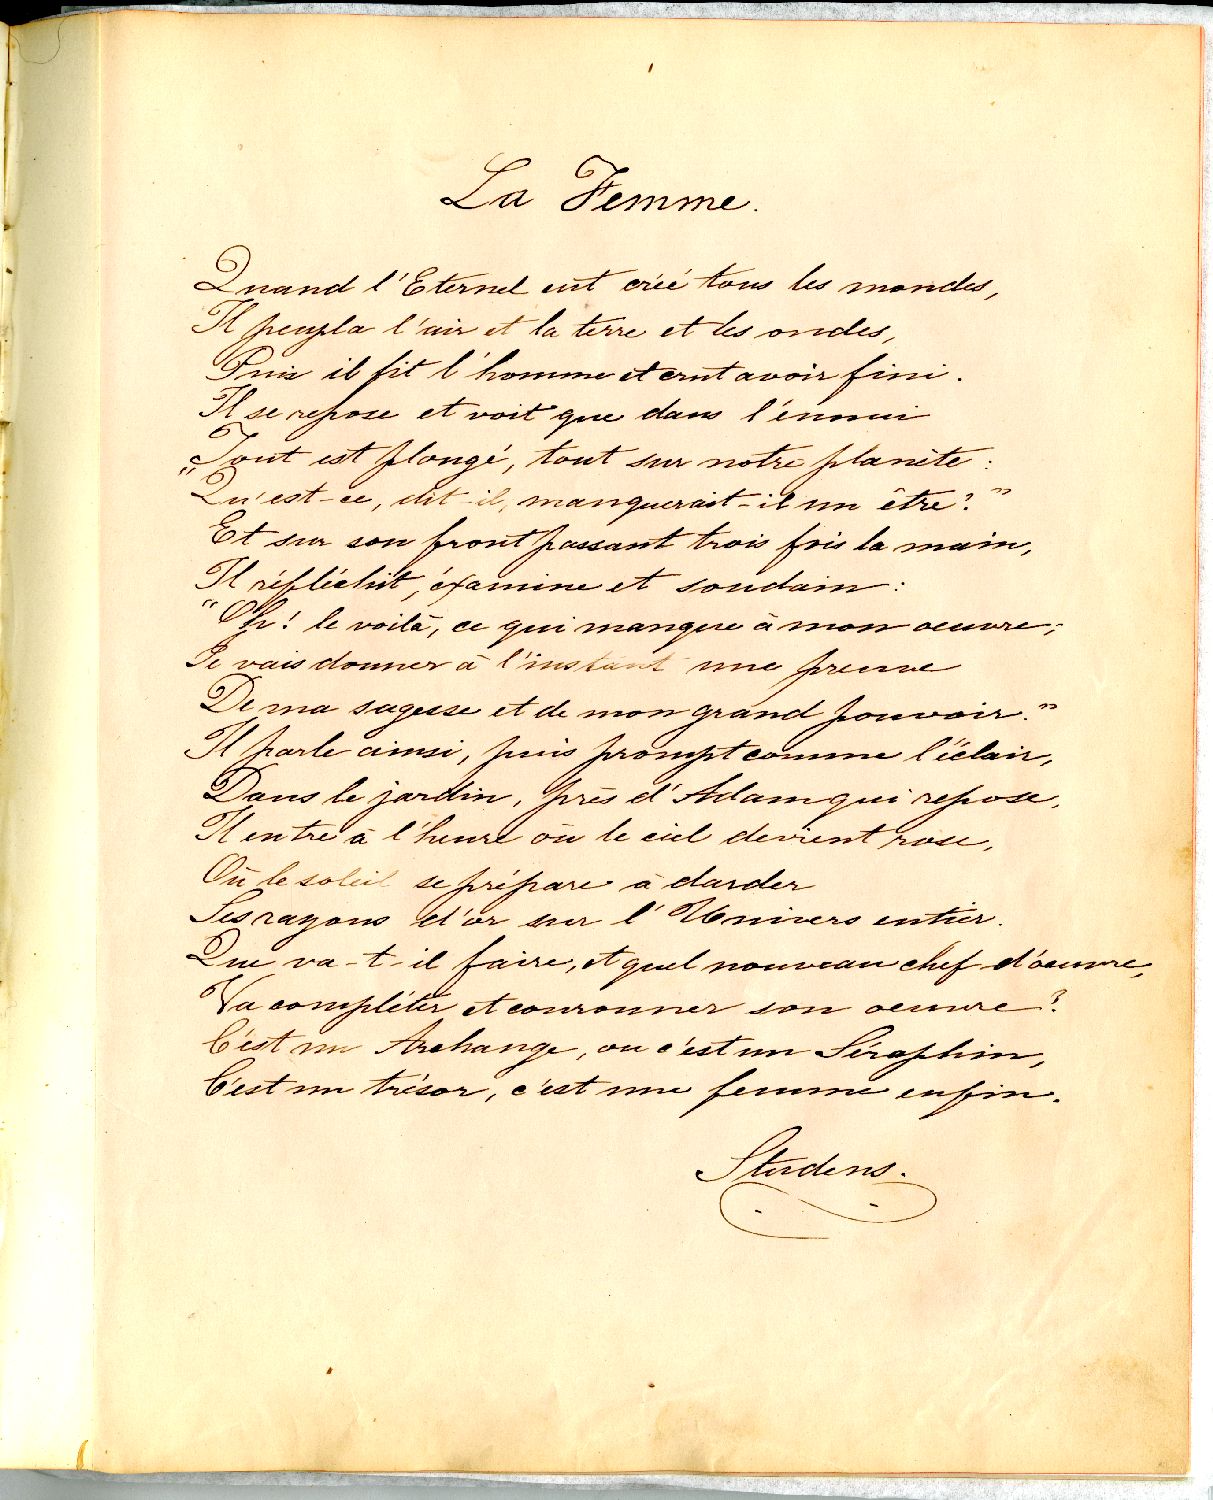 La Femme.
Quand l'Eternel eut créé tous les mondes,
Il peupla l'air et la terre et les ondes,
Puis il fit l'homme et crut avoir fini.
Il se repose et voit que dans l'ennui
Tout est plongé, tout sur notre planète :
"Qu'est-ce, dit-il, manquerait-il un être?"
Et sur son front passant trois fois la main,
Il réfléchit, éxamine et soudain :
"Oh! le voilà, ce qui manque à mon oeuvre;
Je vais donner à l'instant une preuve
De ma sagesse et de mon grand pouvoir."
Il parle ainsi, puis prompt comme l'éclair,
Dans le jardin, près d'Adam qui repose,
Il entre à l'heure où le ciel devient rose,
Où le soleil se prépare à darder
Ses rayons d'or sur l'Univers entier.
Que va-t-il faire, et quel nouveau chef d'oeuvre,
Va compléter et couronner son oeuvre?
C'est un Archange, ou c'est un Séraphin,
C'est un trésor, c'est une femme enfin.
Studens.